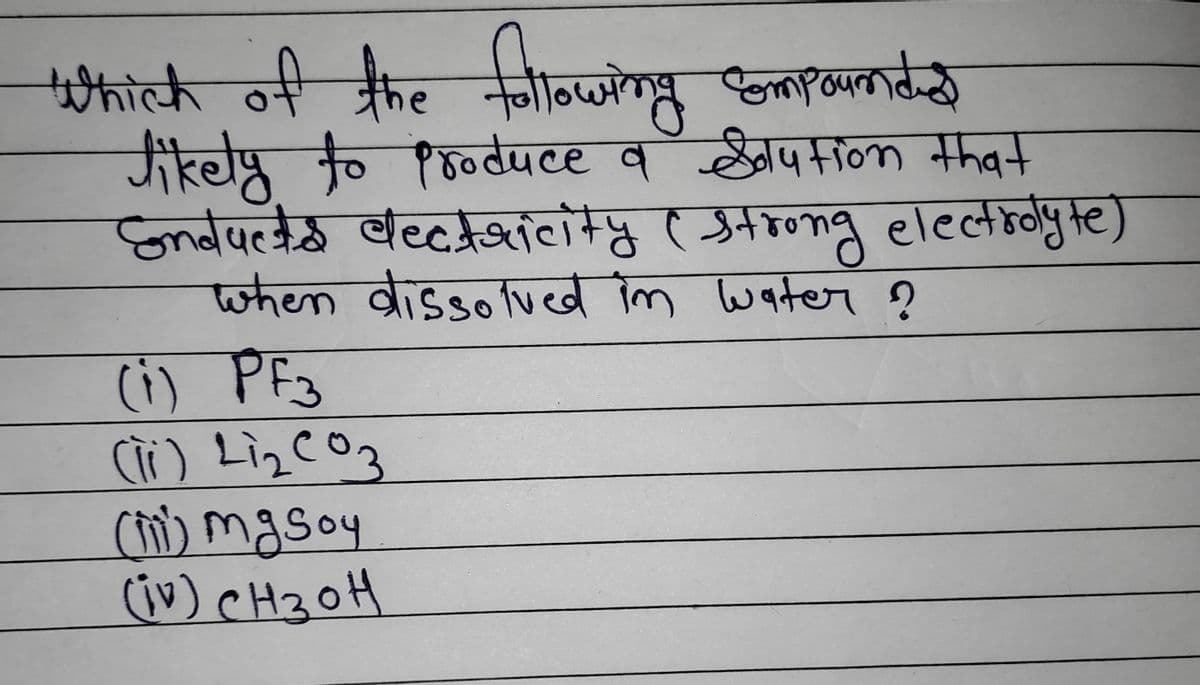 Which of the following Compounds
likely to produce a Solution that
Conducts electricity (strong electrolyte)
when dissolved in water ?
(i) PF3
(ii) Li2CO3
(iii) mgso4
(iv) CH3OH